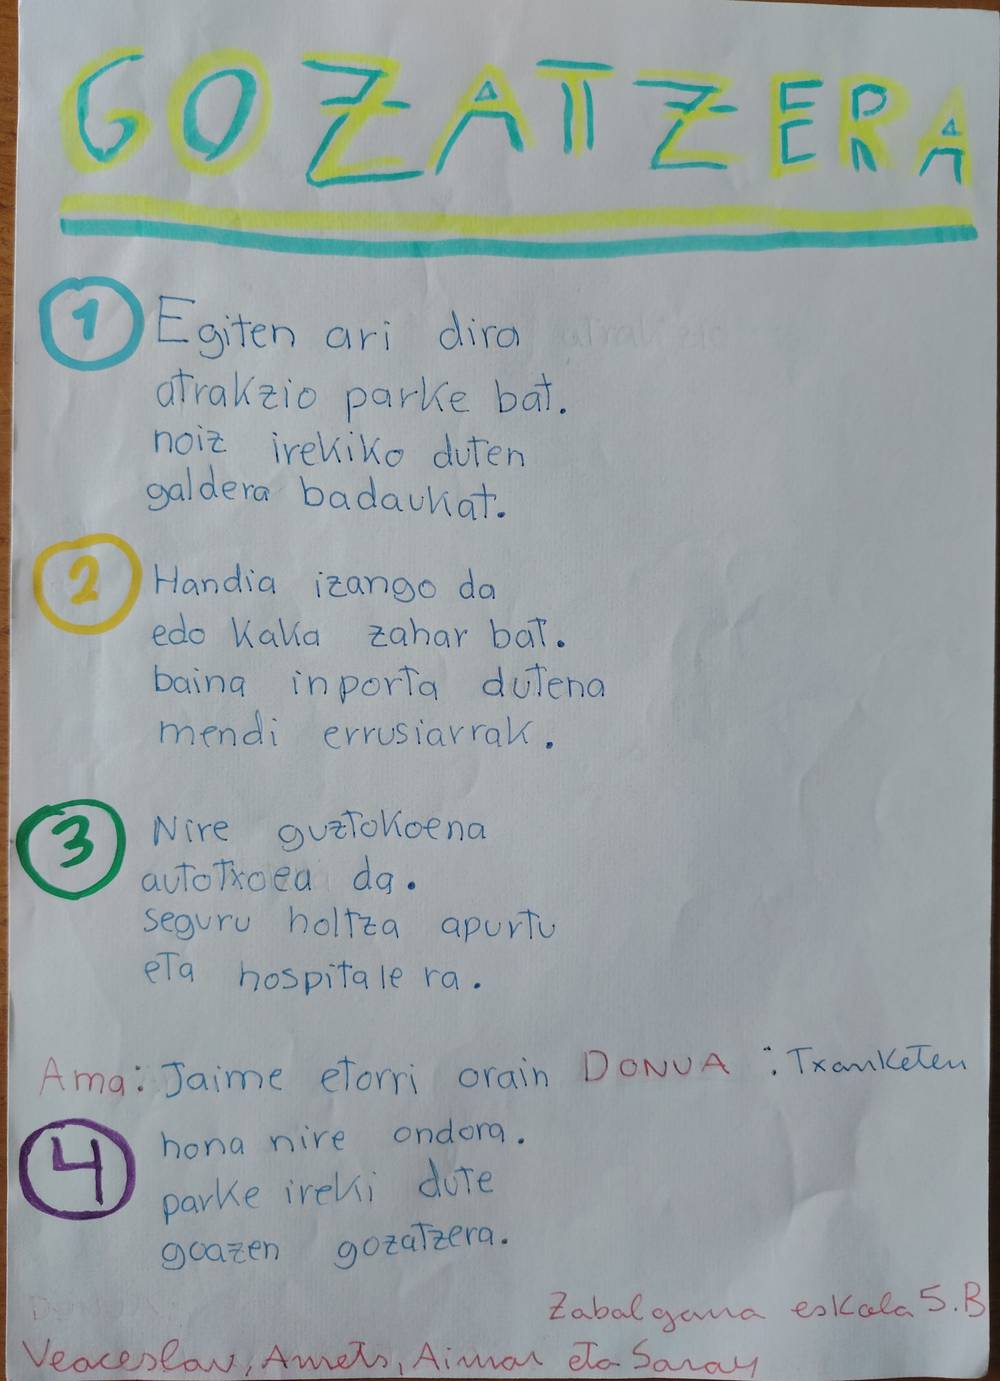 GOZATZERA
1 Egiten ari dira
atrakzio parke bat.
noiz irekiko duten
galdera badaukat.
2 Handia izango da
edo kaka zahar bat.
baina inporta dutena
mendi errusiarrak.
3 Nire guztokoena
autotxoea da.
seguru holtza apurtu
eta hospitalera.
Ama: Jaime etorri orain DONUA: Txanketen
4 hona nire ondora.
parke ireki dute
goazen gozatzera.
Zabalgana eskola 5.B
Veaceslav, Amets, Aimar eta Saray